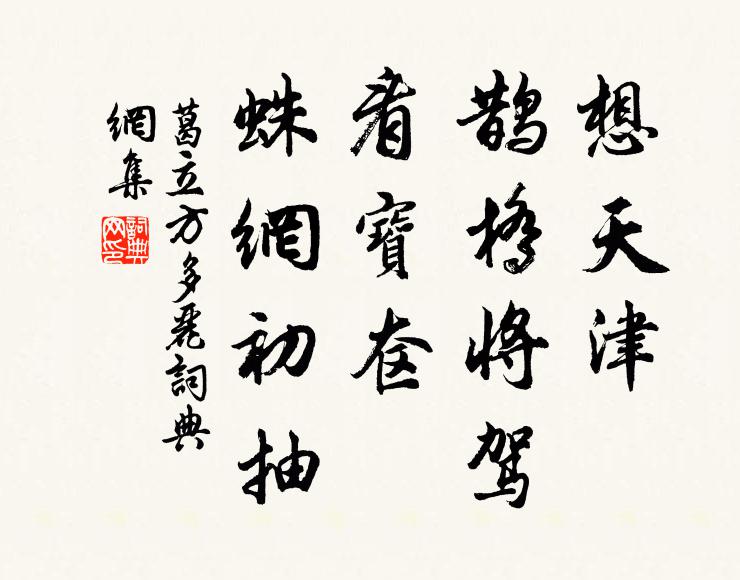 想天津
鹊橋將駕
看寶奁
蛛網初抽
葛立方多麗詞典
網集
詞典
网印